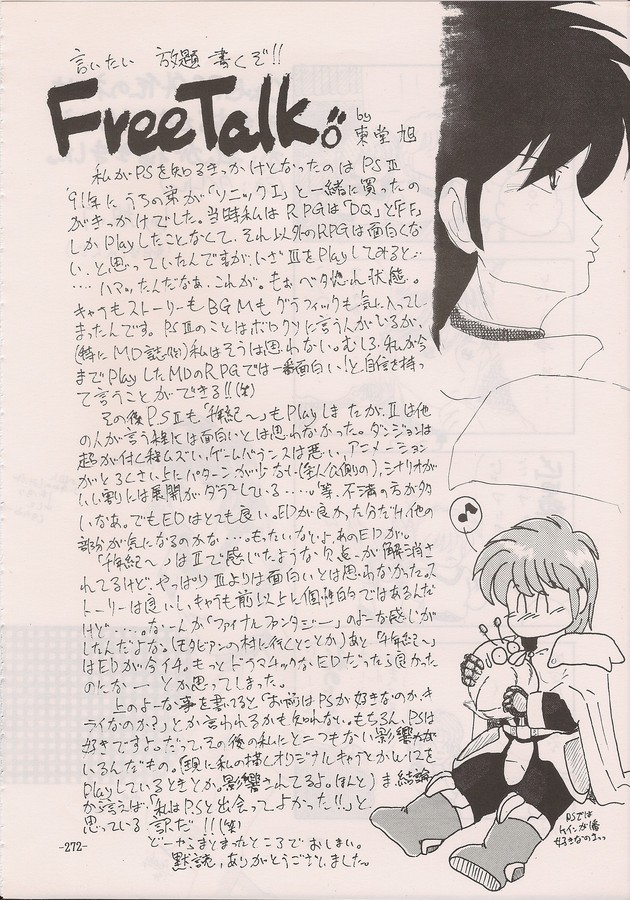 言いたい 放題 書くぞ!!
FreeTalk
by
東堂 旭
私がPSを知るきっかけとなったのはPSⅢ
'91年にうちの弟が「ソニックⅠ」と一緒に買ったの
がきっかけでした。当時私はRPGは「DQ」と「FF」
しかPlayしたことなくて、それ以外のRPGは面白くな
い、と思っていたんですが、いざⅢをPlayしてみると…
…ハマッたんだなあ、これが。もぉベタ惚れ状態。
キャラもストーリーもBGMもグラフィックも気に入ってし
まったんです。PSⅢのことはボロクソに言う人がいるが、
(特にMD誌)私はそうは思わない。むしろ、私が今
までPlayしたMDのRPGでは一番面白い!と自信を持っ
て言うことができる!!(笑)
その後PSⅡも「千年紀〜」もPlayしましたが、Ⅱは他
の人が言う程には面白いとは思わなかった。ダンジョンは
超が付く程ムズいし、ゲームバランスは悪い、アニメーション
がとろくさい上にパターンが少ない(主人公側の)、シナリオが
いい割には展開がダラダラしている……等、不満の方が多
いなあ。でもEDはとても良い。EDが良かった分だけ、他の
部分が気になるのかな…。もったいなとよ、あのEDが。
「千年紀〜」はⅡで感じたような欠点が解消さ
れてるけど、やっぱりⅢよりは面白いとは思わなかった。ス
トーリーは良いし、キャラも前以上に個性的ではあるんだ
けど……。なーんか「ファイナルファンタジー」のよーな感じが
したんだよな。(モタビアンの村に行くとことか)あと「千年紀〜」
はEDが今イチ。もっとドラマチックなEDだったら良かった
のにな— とか思ってしまった。
上のよーな事を書いてると「お前はPSが好きなのか、キ
ライなのか?」とか言われるかも知れない。もちろん、PSは
好きですよ。だって、その後の私にとーっもない影響が
いるんだもの。(現に私の描くオリジナルキャラとか
Playしているときとか。影響されてるよ。ほんと)ま、結論
から言えば、「私はPSと出会ってよかった!!」と
思っている訳だ!!(笑)
どーやらまとまったところでおしまい。
黙読、ありがとうございました。
PSでは
ケインが1番
好きなのよっっ
-272-